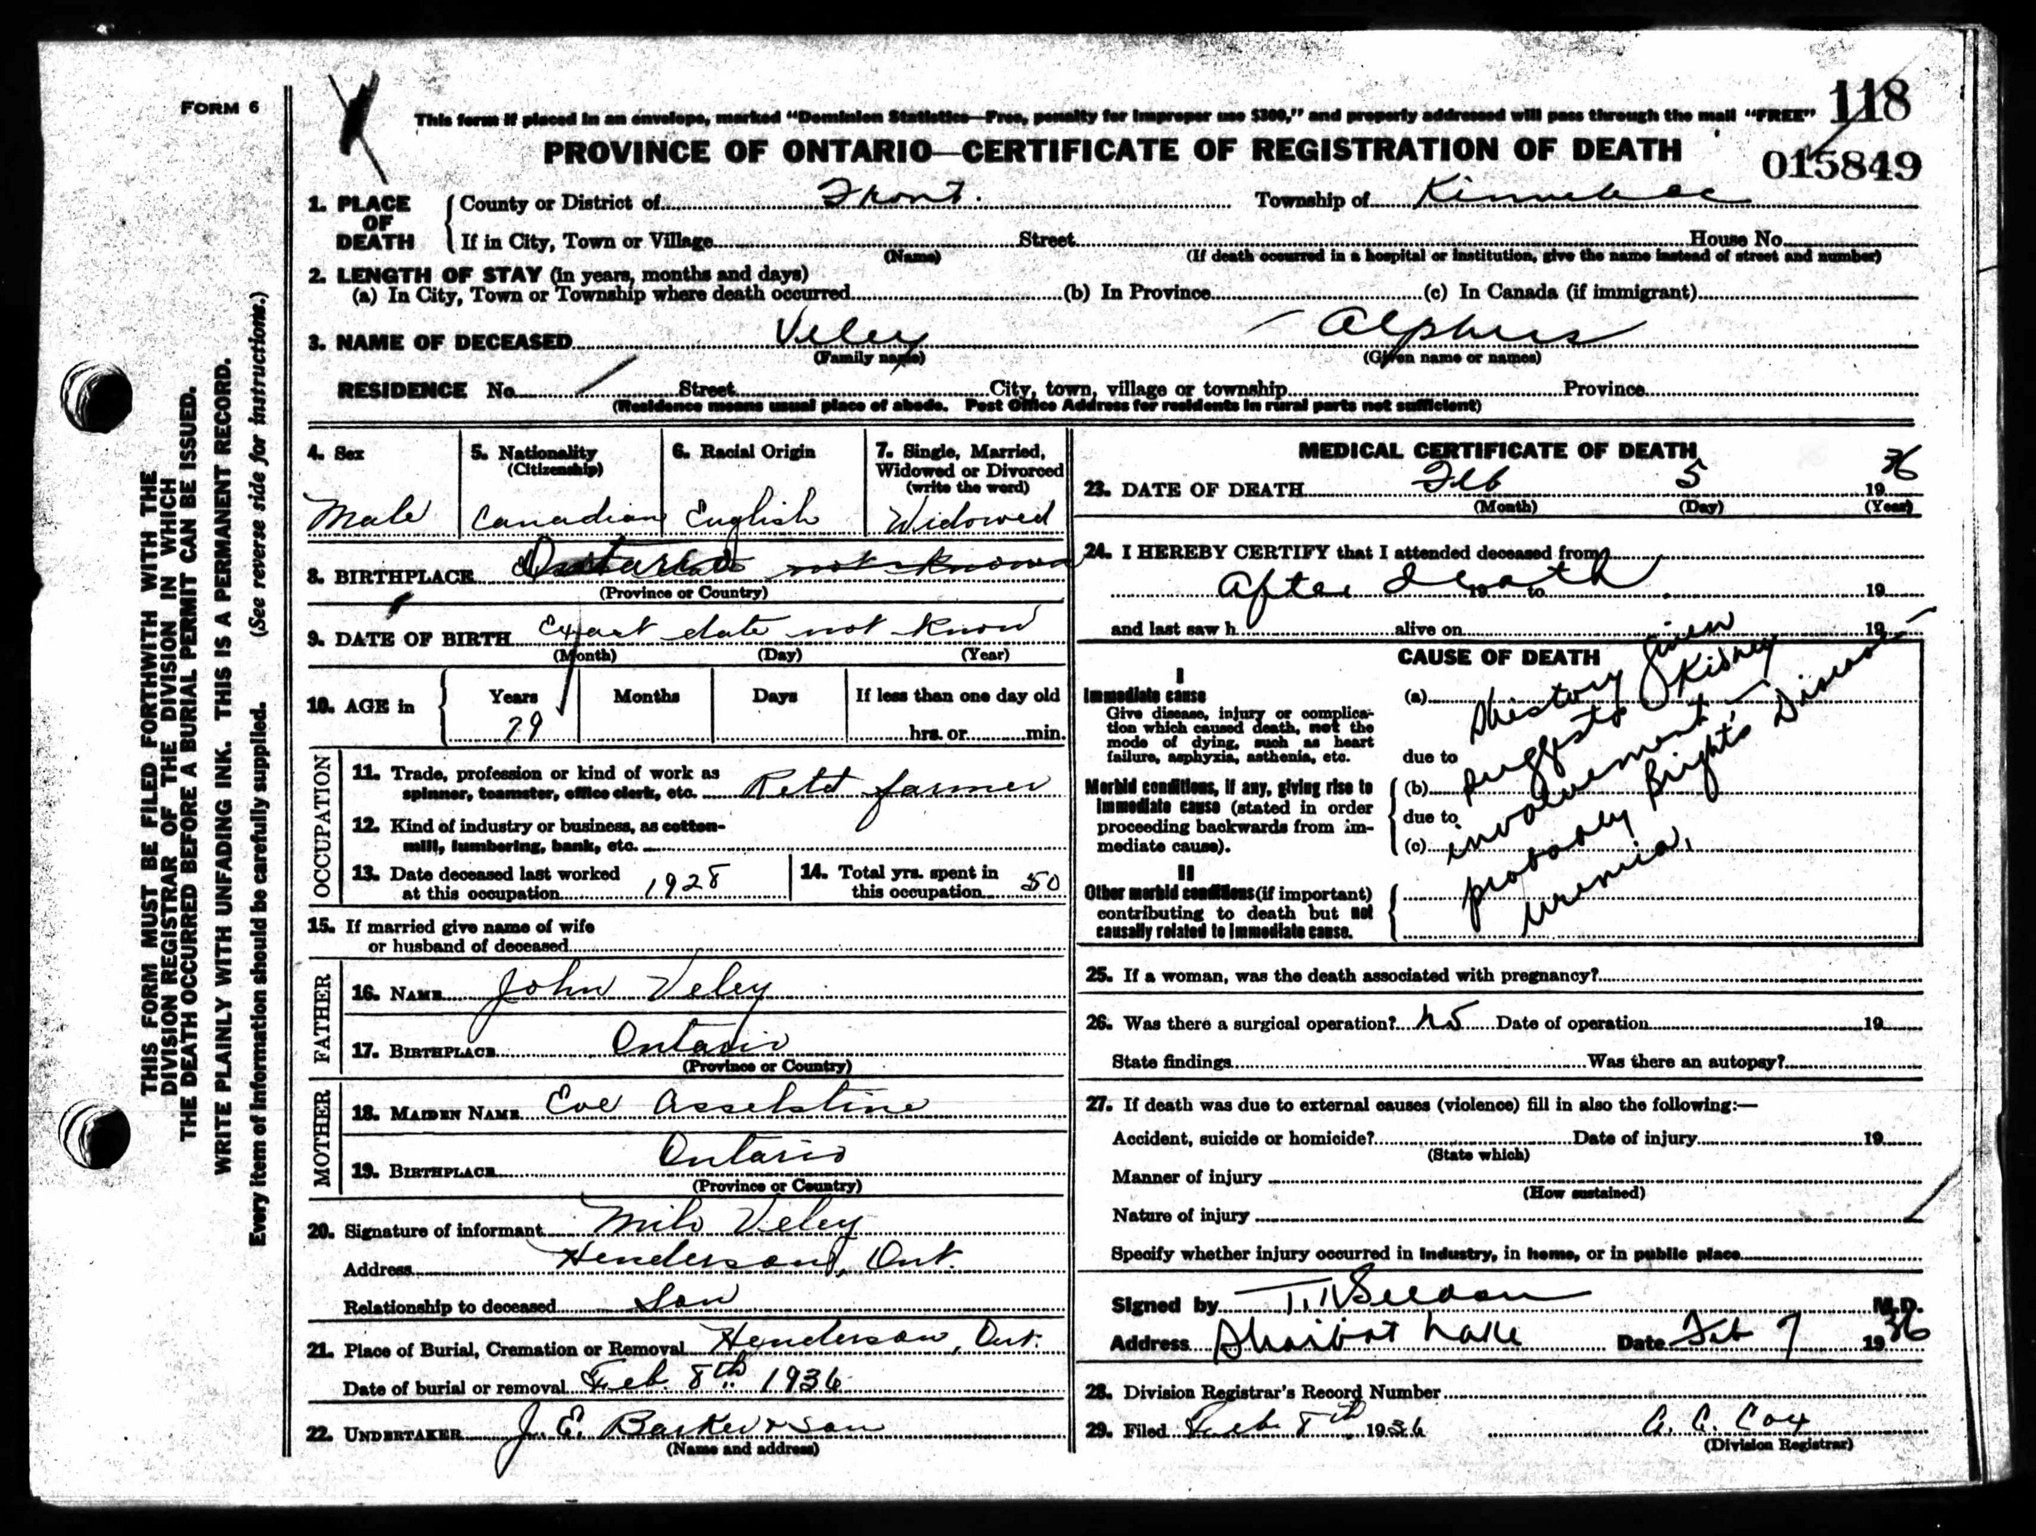 FORM 6
118
This form if placed in an envelope, marked "Dominion Statistics—Free, penalty for improper use $300," and properly addressed will pass through the mail "FREE"
PROVINCE OF ONTARIO—CERTIFICATE OF REGISTRATION OF DEATH
015849
1. PLACE OF DEATH
County or District of Front. Township of Kinnebec
If in City, Town or Village Street House No.
(Name) (If death occurred in a hospital or institution, give the name instead of street and number)
2. LENGTH OF STAY (in years, months and days)
(a) In City, Town or Township where death occurred (b) In Province (c) In Canada (if immigrant)
3. NAME OF DECEASED Veley Alpheus
(Family name) (Given name or names)
RESIDENCE No. Street City, town, village or township Province
(Residence means usual place of abode. Post Office Address for residents in rural parts not sufficient)
4. Sex
Male
5. Nationality
(Citizenship)
Canadian
6. Racial Origin
English
7. Single, Married,
Widowed or Divorced
(write the word)
Widowed
8. BIRTHPLACE Ontario not known
(Province or Country)
9. DATE OF BIRTH Exact date not know
(Month) (Day) (Year)
10. AGE in
Years Months Days If less than one day old
79 hrs. or min.
OCCUPATION
11. Trade, profession or kind of work as
spinner, teamster, office clerk, etc. Retd farmer
12. Kind of industry or business, as cotton-
mill, lumbering, bank, etc.
13. Date deceased last worked
at this occupation 1928
14. Total yrs. spent in
this occupation 50
15. If married give name of wife
or husband of deceased
FATHER
16. NAME John Veley
17. BIRTHPLACE Ontario
(Province or Country)
MOTHER
18. MAIDEN NAME Eve Asselstine
19. BIRTHPLACE Ontario
(Province or Country)
20. Signature of informant Milo Veley
Address Henderson, Ont.
Relationship to deceased Son
21. Place of Burial, Cremation or Removal Henderson, Ont.
Date of burial or removal Feb. 8th 1936
22. UNDERTAKER J. E. Barker & Son
(Name and address)
MEDICAL CERTIFICATE OF DEATH
23. DATE OF DEATH Feb 5 1936
(Month) (Day) (Year)
24. I HEREBY CERTIFY that I attended deceased from
After death 19 to 19
and last saw h alive on 19
CAUSE OF DEATH
I
Immediate cause
Give disease, injury or complica-
tion which caused death, not the
mode of dying, such as heart
failure, asphyxia, asthenia, etc.
Morbid conditions, if any, giving rise to
immediate cause (stated in order
proceeding backwards from im-
mediate cause).
II
Other morbid conditions (if important)
contributing to death but not
causally related to immediate cause.
(a)
due to
(b)
due to
(c)
History given
suggests Kidney
involvement —
probably Bright's Disease —
uremia.
25. If a woman, was the death associated with pregnancy?
26. Was there a surgical operation? no Date of operation 19
State findings Was there an autopsy?
27. If death was due to external causes (violence) fill in also the following:—
Accident, suicide or homicide? Date of injury 19
(State which)
Manner of injury
(How sustained)
Nature of injury
Specify whether injury occurred in industry, in home, or in public place
Signed by M.D.
Address Sharbot Lake Date Feb 7 1936
28. Division Registrar's Record Number
29. Filed Feb. 8th 1936 A. C. Cox
(Division Registrar)
THIS FORM MUST BE FILED FORTHWITH WITH THE
DIVISION REGISTRAR OF THE DIVISION IN WHICH
THE DEATH OCCURRED BEFORE A BURIAL PERMIT CAN BE ISSUED.
WRITE PLAINLY WITH UNFADING INK. THIS IS A PERMANENT RECORD.
Every item of information should be carefully supplied. (See reverse side for instructions.)